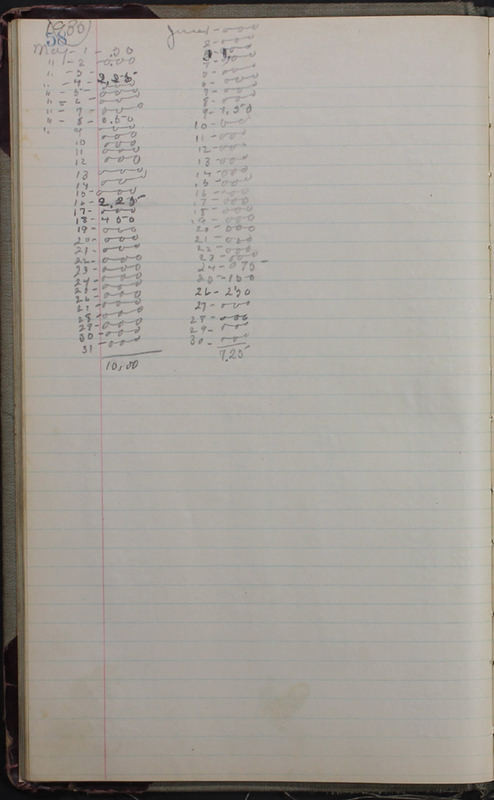 (1930)
58
May - 1 - .00
" - 2 - 0.00
" - 3 -
" - 4 - 2,25
" - 5 - 000
" - 6 - 000
" - 7 - 000
" - 8 - 0.50
" 9 - 000
10 - 000
11 - 000
12 000
13 000
14 - 000
15 - 000
16 - 2,25
17 - 000
18 - 450
19 - 000
20 - 000
21 - 000
22 - 000
23 - 000
24 - 000
25 - 000
26 - 000
27 - 000
28 000
29 - 000
30 - 000
31
10,00
June 1 - 000
2 - 000
8 - 000
9 - 1,50
10 - 000
11 - 000
12 - 000
13 - 000
14 - 000
15 - 000
16 - 000
17 - 000
18 - 000
19 - 000
20 - 000
21 - 000
22 - 000
23 - 000
24 - 075
25 - 150
26 - 250
27 - 000
28 - 000
29 - 000
30 - 000
7,25